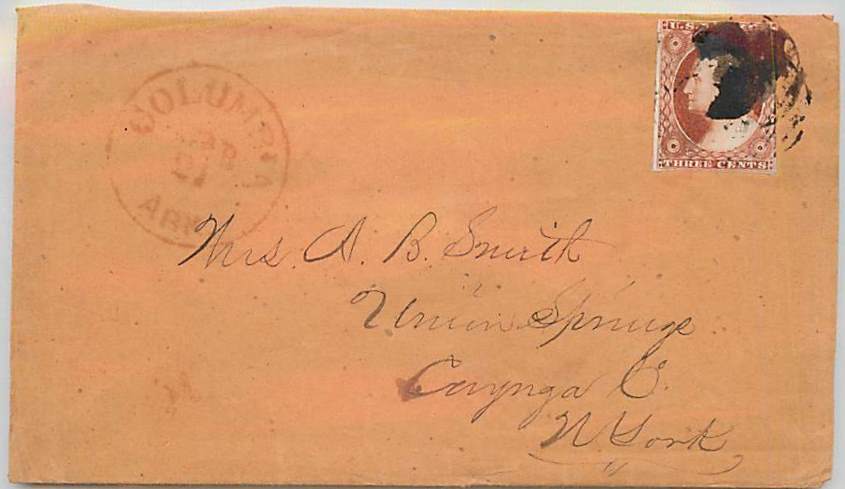 COLUMBIA
21
ARK
U.S.
THREE CENTS
Mrs. A. B. Smith
Union Springs
Cayuga C.
N York